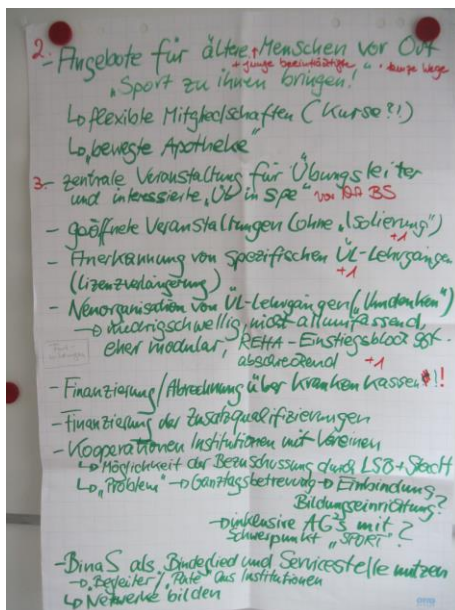 2. - Angebote für ältere Menschen vor Ort
+ junge beeinträchtigte • kurze Wege
"Sport zu ihnen bringen!"
↳ flexible Mitgliedschaften (Kurse?!)
↳ "bewegte Apotheke"
3. - zentrale Veranstaltung für Übungsleiter
und interessierte "ÜL in spe" BS
- geöffnete Veranstaltungen (ohne "Isolierung")
+1
- Anerkennung von spezifischen ÜL-Lehrgängen
(Lizenzverlängerung) +1
- Neuorganisation von ÜL-Lehrgängen ("Umdenken")
→ niedrigschwellig, nicht allumfassend,
eher modular, REHA-Einstiegsblock ggf.
abschreckend +1
- Finanzierung/Abrechnung über Krankenkassen!!!
- Finanzierung der Zusatzqualifizierungen
- Kooperationen Institutionen mit Vereinen
↳ Möglichkeit der Bezuschussung durch LSB + Stadt
↳ "Problem" → Ganztagsbetreuung → Einbindung
Bildungseinrichtung?
→ inklusive AG's mit ?
Schwerpunkt "SPORT"
- BinaS als "Bindeglied und Servicestelle nutzen
→ "Begleiter"/"Pate" aus Institutionen
↳ Netzwerke bilden